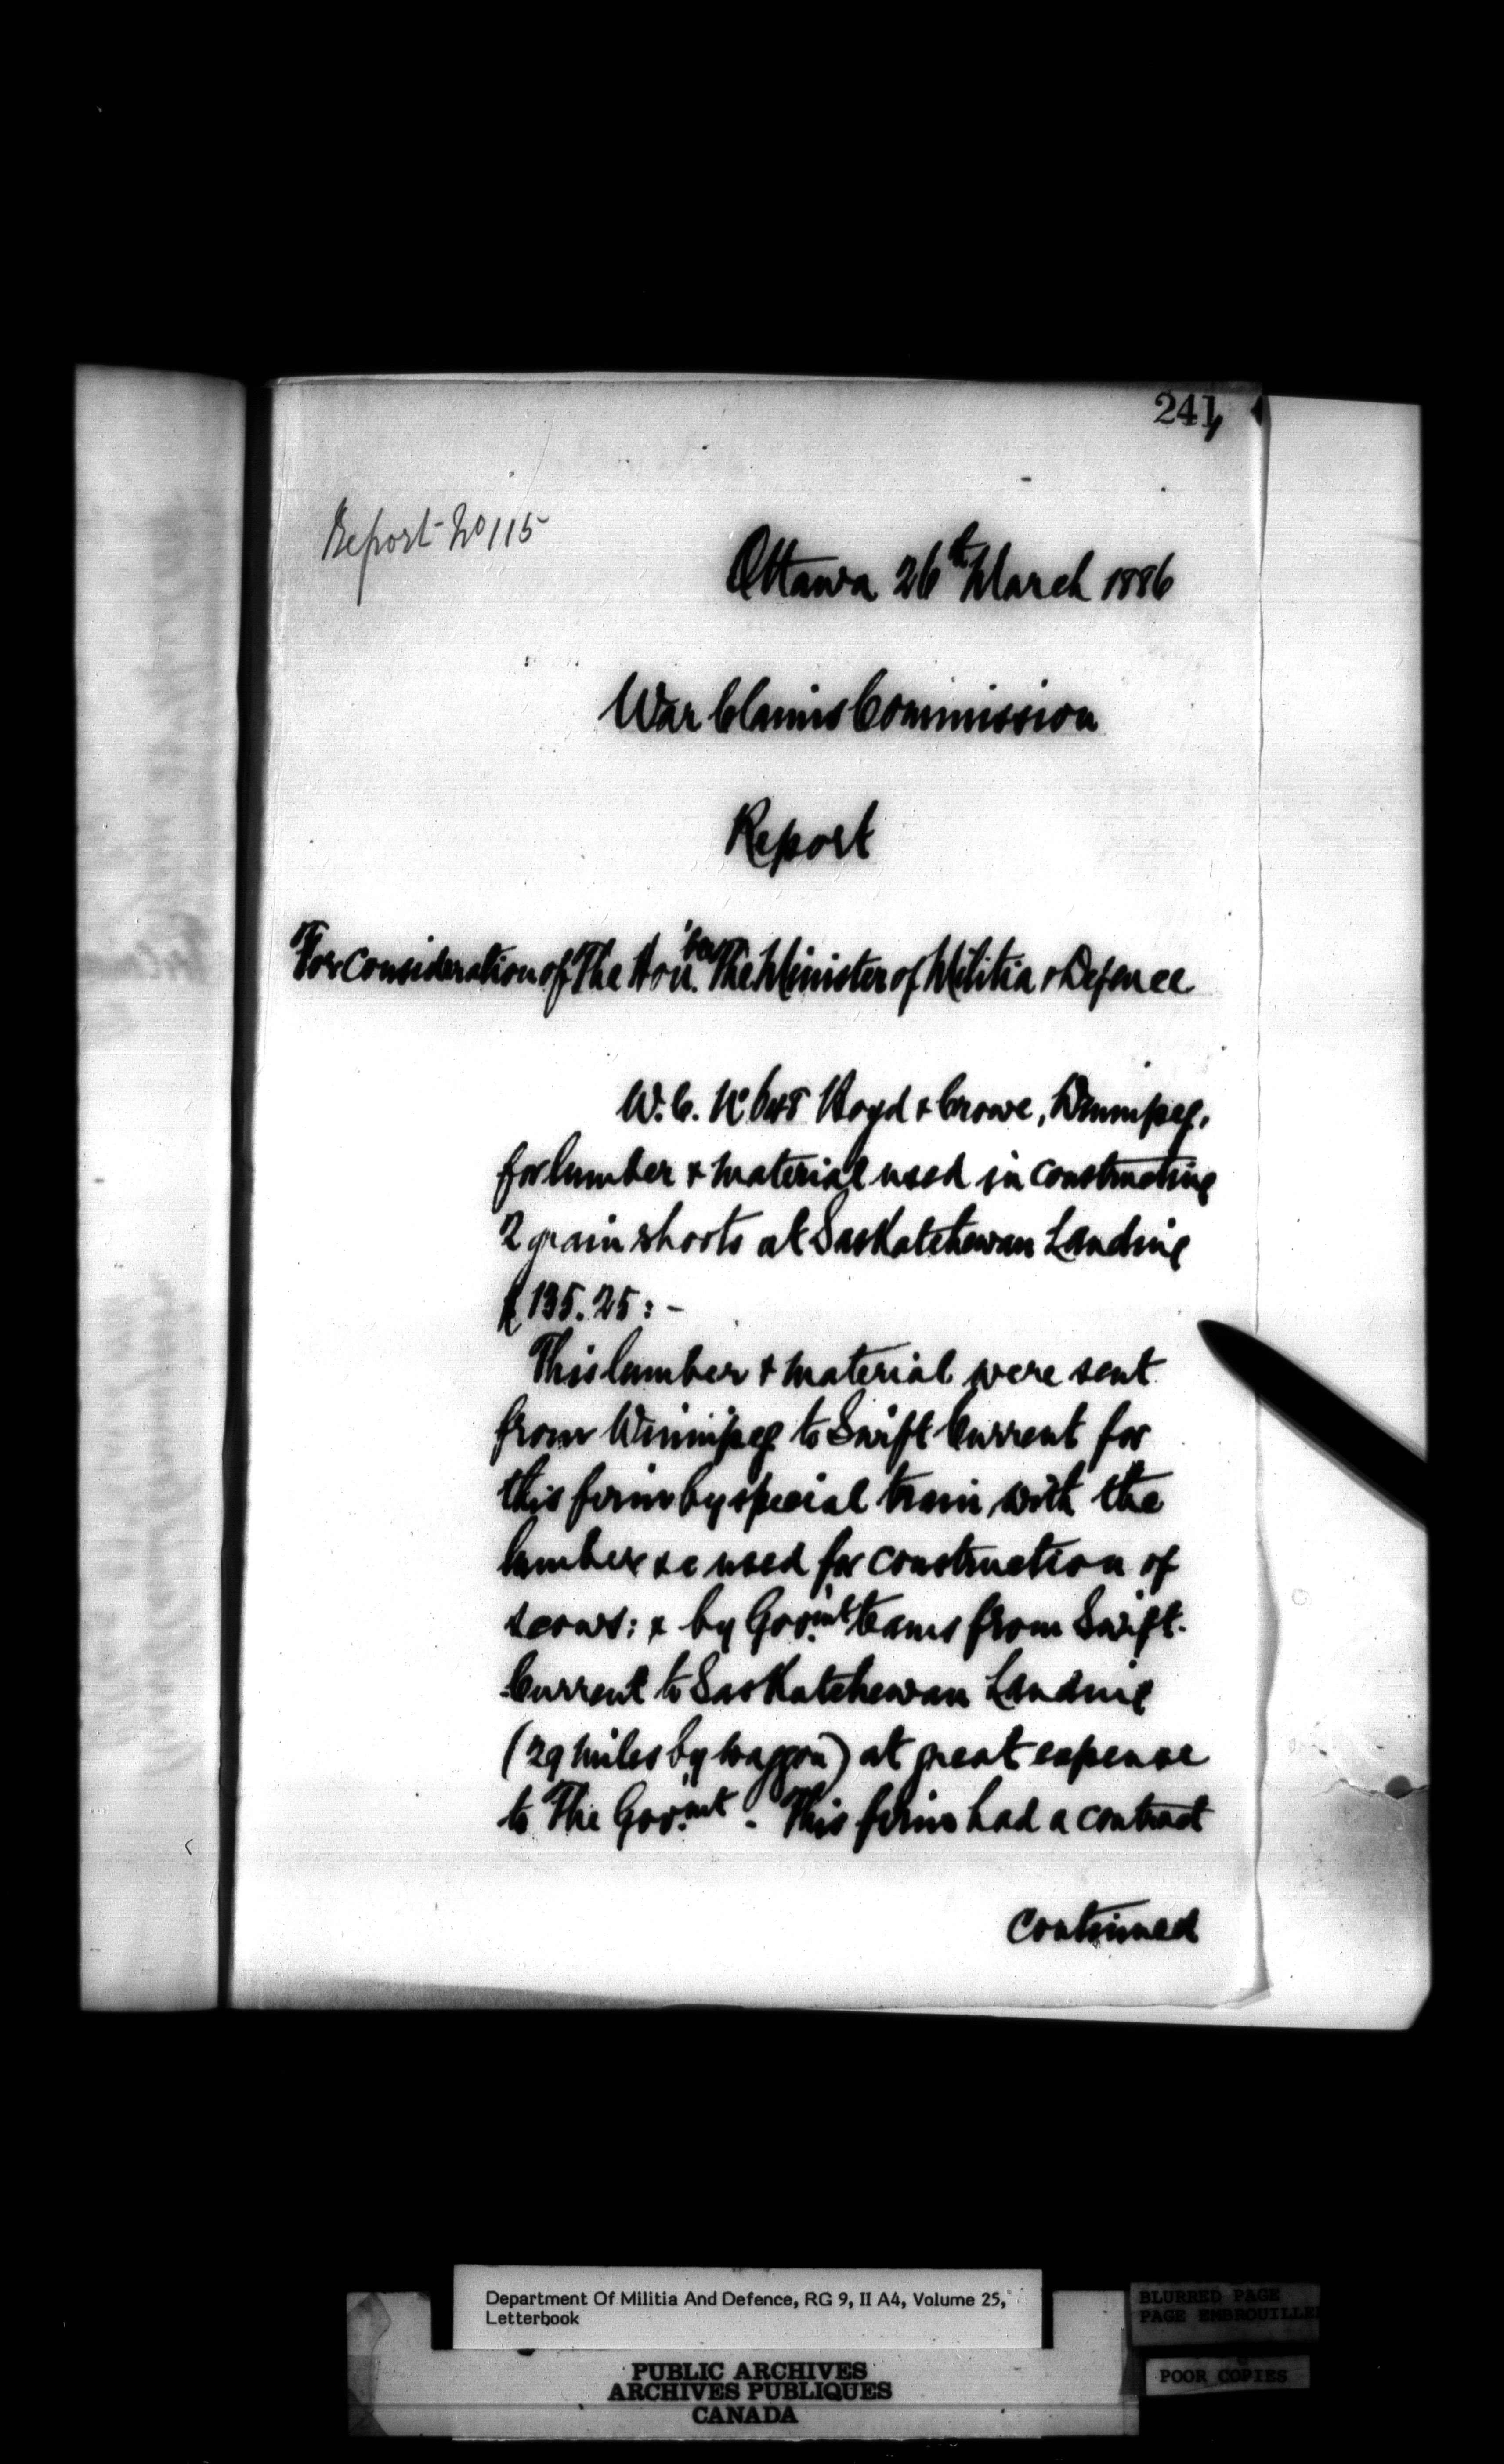 241
Report No 115
Ottawa 26th March 1886
War Claims Commission
Report
For consideration of The Hon'ble The Minister of Militia & Defence
W.C. No 648 Boyd & Crowe, Winnipeg,
for lumber & material used in constructing
2 grain shoots at Saskatchewan Landing
$135.25:-
This lumber & material were sent
from Winnipeg to Swift Current for
this firm by special train, with the
lumber &c used for construction of
scows: & by Gov.mt teams from Swift-
Current to Saskatchewan Landing
(29 miles by waggon) at great expense
to The Gov.mt. This firm had a contract
Continued
Department Of Militia And Defence, RG 9, II A4, Volume 25,
Letterbook
BLURRED PAGE
PAGE EMBROUILLE
POOR COPIES
PUBLIC ARCHIVES
ARCHIVES PUBLIQUES
CANADA